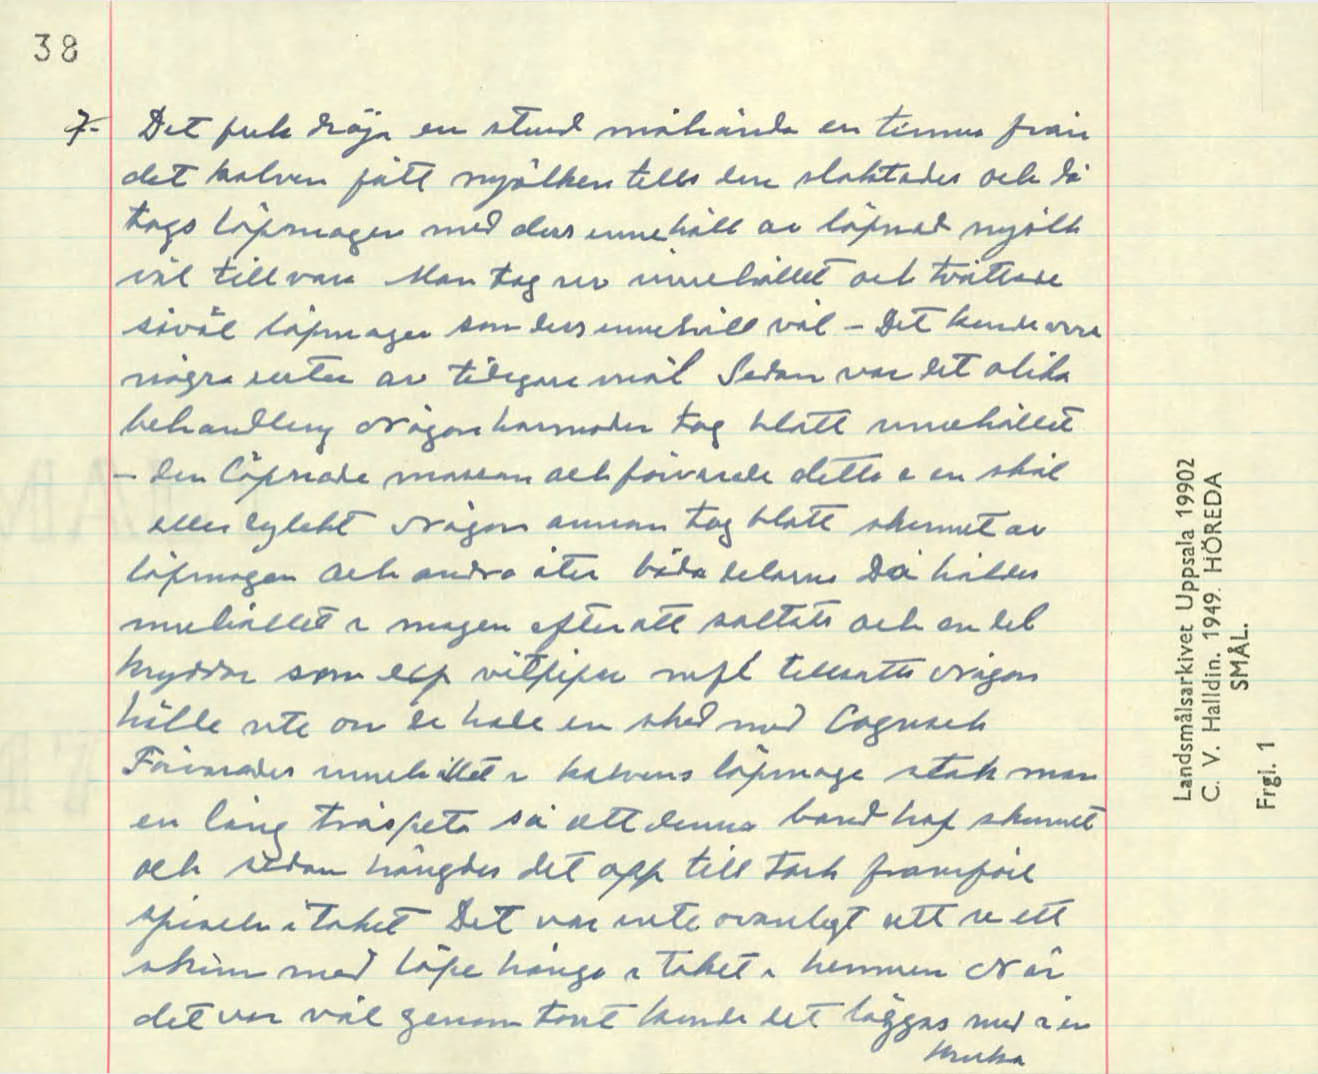 38
7- Det fick dröja en stund måhända en timma från
det kalven fått mjölken tills den slaktades och då
togs löpmagen med dess innehåll av löpnad mjölk
väl till vara Man tog ur innehållet och tvättade
såväl löpmagen som dess innehåll väl – Det kunde vara
några rester av tidigare mål Sedan var det olika
behandling Någon husmoder tog blott innehållet
– den löpnade massan och förvarade detta i en skål
eller dylikt Någon annan tog blott skinnet av
löpmagen och andra åter båda delarna Då hälldes
innehållet i magen efter att saltats och en del
kryddor som exp vitpipar mfl tillsatts Någon
hällde ute om de hade en sked med Cognack
Förvarades innehållet i kalvens löpmage stak man
en lång trästpeta så att denna band hop skinnet
och sedan hängdes det opp till tork framför
spiseln i taket Det var inte ovanligt att se ett
skinn med löpe hänga i taket i hemmen När
det var väl genom tort kunde det läggas ned i en
kruka
Landsmålsarkivet Uppsala 19902
C. V. Halldin. 1949. HÖREDA
SMÅL.
Frgl. 1